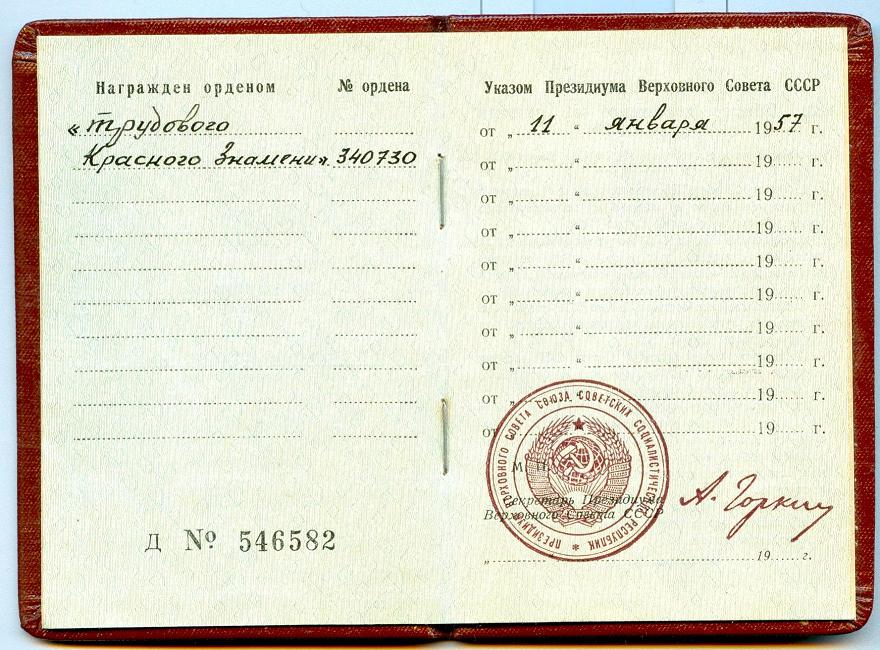 Награжден орденом № ордена
«Трудового
Красного Знамени» 340730
Д № 546582
Указом Президиума Верховного Совета СССР
от „ 11 “ января 1957 г.
от „ “ 19 г.
от „ “ 19 г.
от „ “ 19 г.
от „ “ 19 г.
от „ “ 19 г.
от „ “ 19 г.
от „ “ 19 г.
от „ “ 19 г.
от „ “ 19 г.
ПРЕЗИДИУМ ВЕРХОВНОГО СОВЕТА СОЮЗА СОВЕТСКИХ СОЦИАЛИСТИЧЕСКИХ РЕСПУБЛИК
М. П.
Секретарь Президиума
Верховного Совета СССР
А. Горкин
„ 19 г.